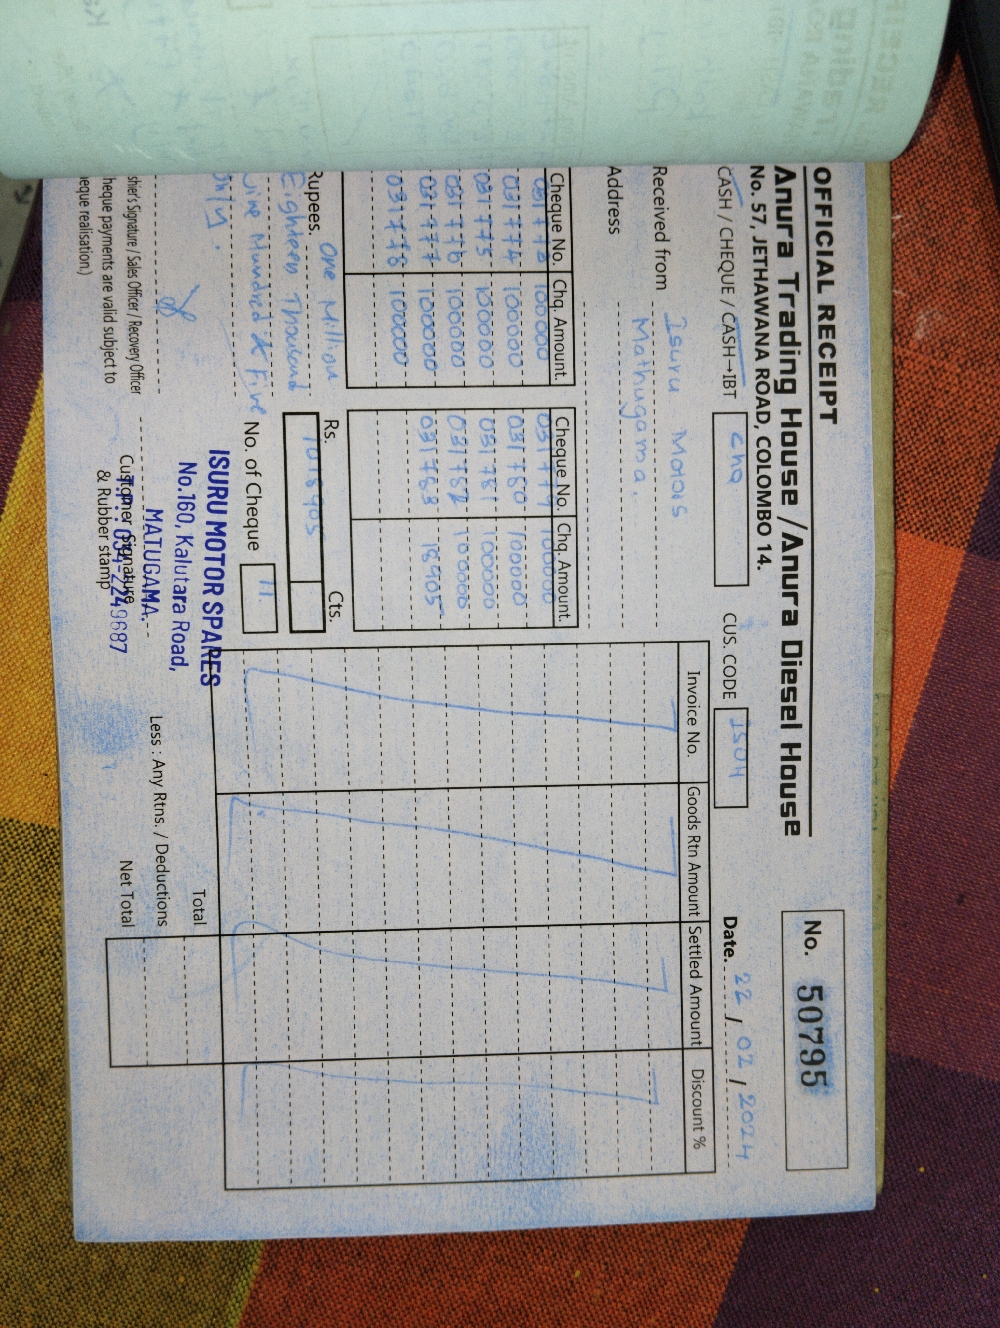 OFFICIAL RECEIPT
Anura Trading House / Anura Diesel House
No. 57, JETHAWANA ROAD, COLOMBO 14.
No. 50795
CASH / CHEQUE / CASH→IBT chq
CUS. CODE ISU4
Date. 22 / 02 / 2024
Received from Isuru Motors
Mathugama.
Address
Cheque No. Chq. Amount.
031773 100000
031774 100000
031775 100000
031776 100000
031777 100000
031778 100000
Cheque No. Chq. Amount.
031779 100000
031780 100000
031781 100000
031782 100000
031783 18905
Invoice No. Goods Rtn Amount Settled Amount Discount %
Rupees. One Million
Eighteen Thousand
Nine Hundred & Five
only.
Rs. Cts.
1018905
No. of Cheque 11.
Total
Less : Any Rtns. / Deductions
Net Total
shier's Signature / Sales Officer / Recovery Officer
heque payments are valid subject to
eque realisation.)
Customer Signature
& Rubber stamp
ISURU MOTOR SPARES
No.160, Kalutara Road,
MATUGAMA.
T.P.: 034-2249687